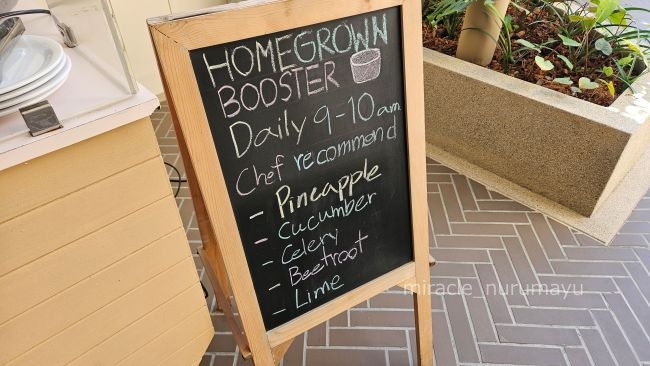 HOMEGROWN
BOOSTER
Daily 9-10am
Chef recommend
- Pineapple
- Cucumber
- Celery
- Beetroot
- Lime
miracle_nurumayu